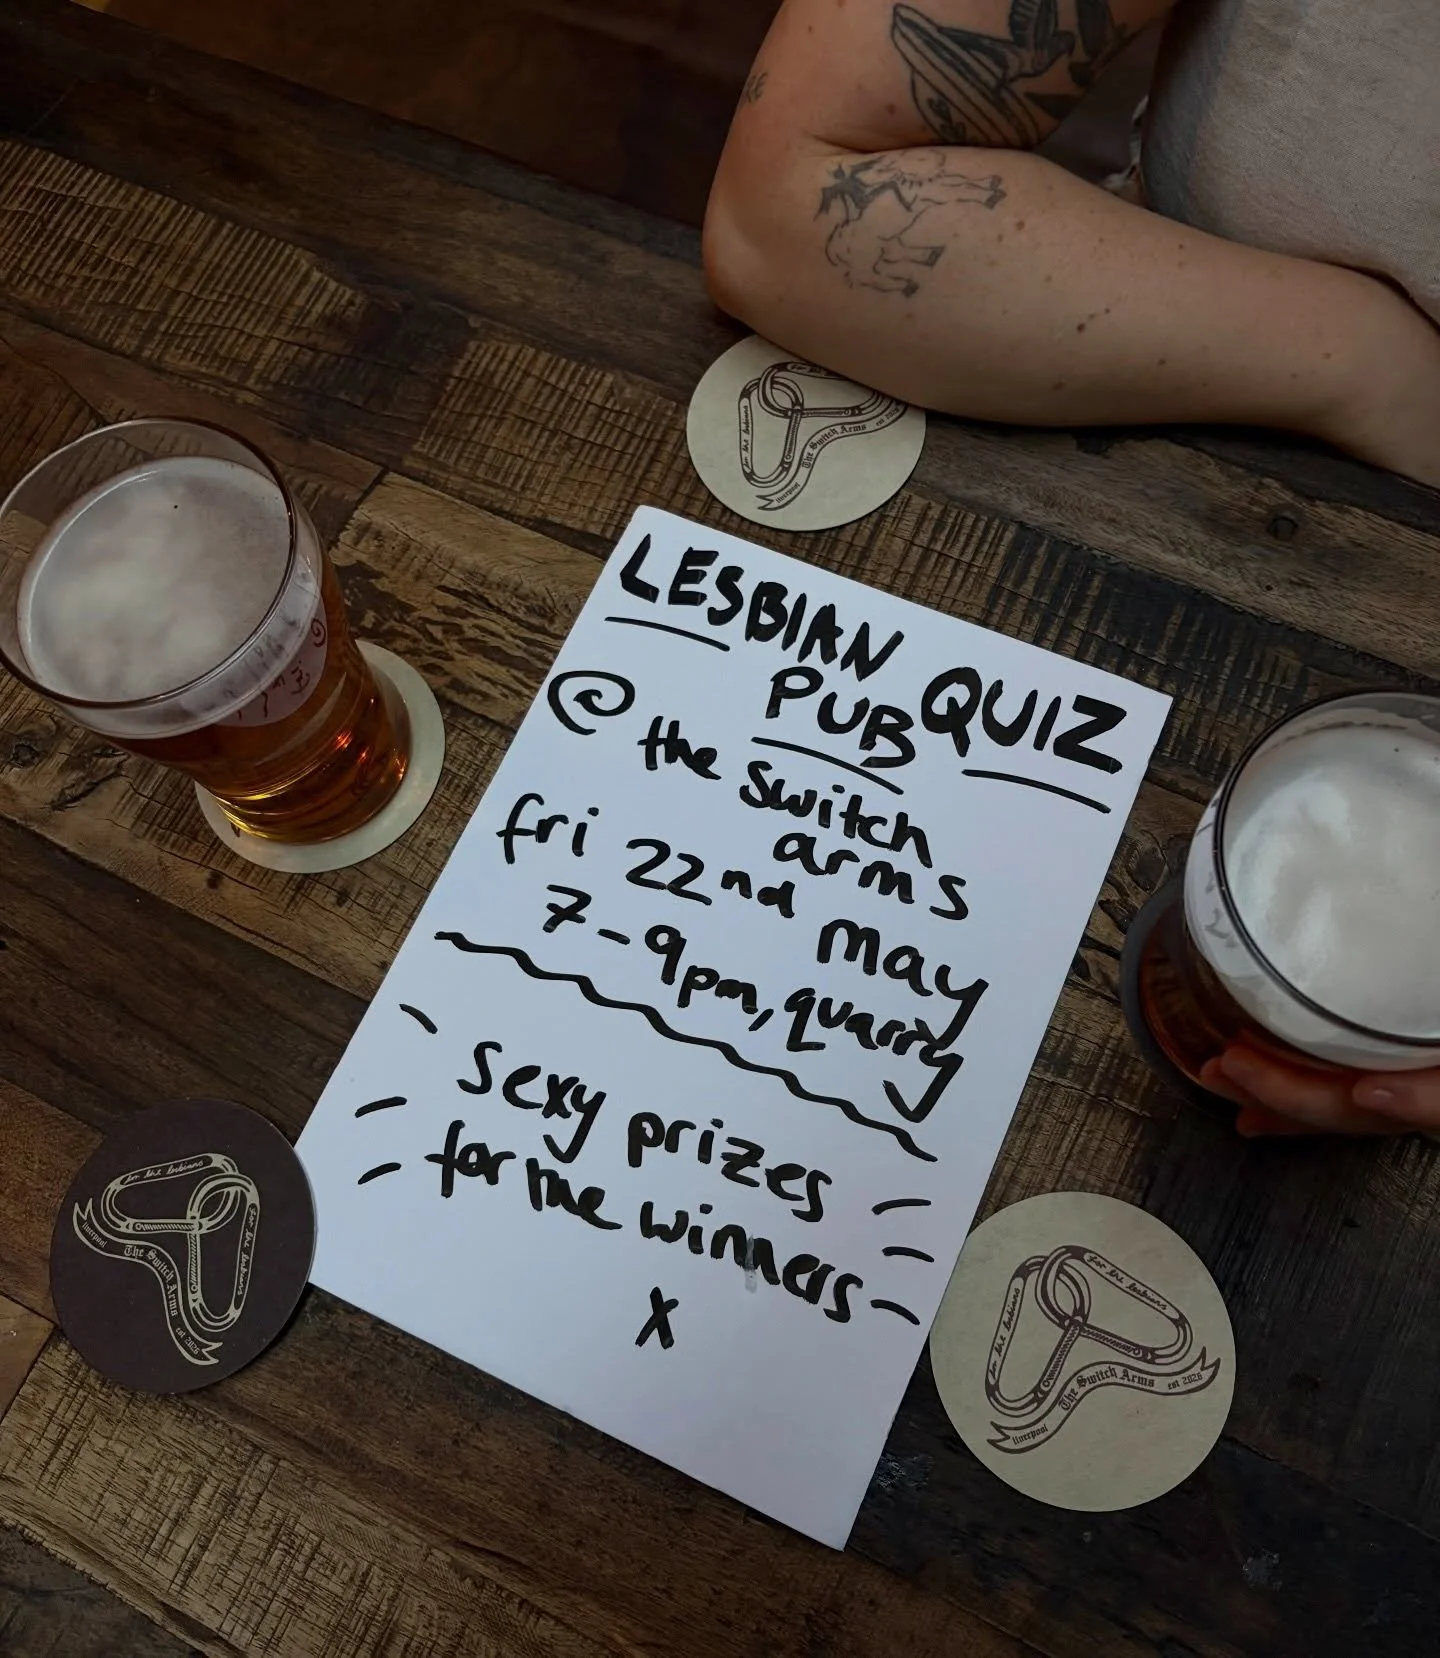 LESBIAN QUIZ
PUB
@ the switch
arms
fri 22nd may
7-9pm, quarry
sexy prizes
for the winners
x
for the lesbians
The Switch Arms
est 2026
liverpool
for the lesbians
for the lesbians
liverpool
The Switch Arms
est 2026
for the lesbians
for the lesbians
The Switch Arms
est 2026
liverpool